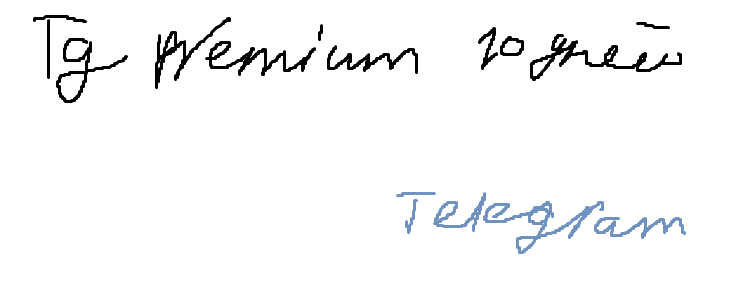 Tg Premium 10 дней
Telegram